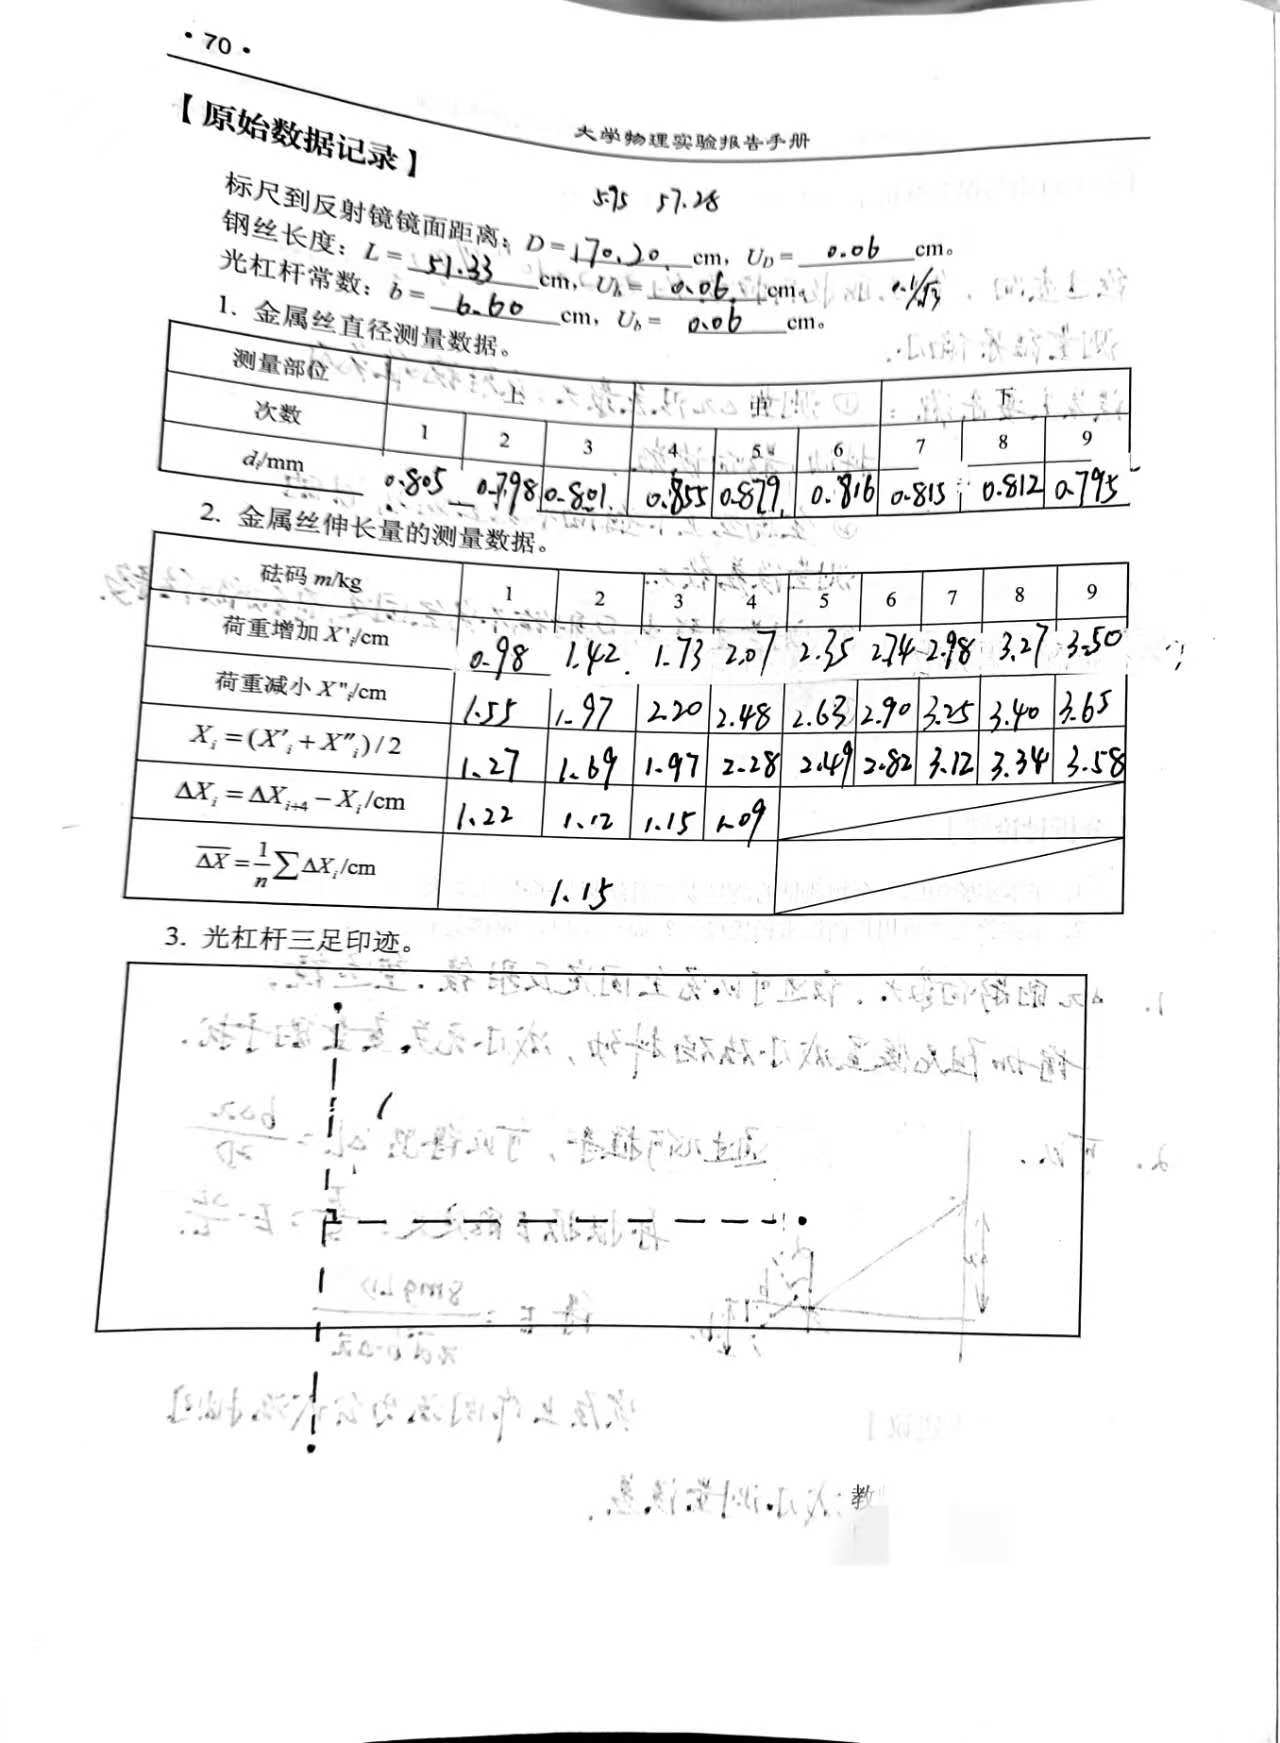 ·70·
大学物理实验报告手册
【原始数据记录】
5.95 57.28
标尺到反射镜镜面距离：D=170.20 cm，U_D=0.06 cm。
钢丝长度：L=51.33 cm，U_h=0.06 cm。 0.1/√3
光杠杆常数：b=6.60 cm，U_b=0.06 cm。
1. 金属丝直径测量数据。
测量部位 上 中 下
次数 1 2 3 4 5 6 7 8 9
d_i/mm 0.805 0.798 0.801 0.855 0.879 0.816 0.815 0.812 0.795
2. 金属丝伸长量的测量数据。
砝码 m/kg 1 2 3 4 5 6 7 8 9
荷重增加 X'_i/cm 0.98 1.42 1.73 2.07 2.35 2.74 2.98 3.27 3.50
荷重减小 X"_i/cm 1.55 1.97 2.20 2.48 2.63 2.90 3.25 3.40 3.65
X_i=(X'_i+X"_i)/2 1.27 1.69 1.97 2.28 2.49 2.82 3.12 3.34 3.58
ΔX_i=ΔX_{i+4}−X_i/cm 1.22 1.12 1.15 1.09
\overline{ΔX}=\frac{1}{n}∑ΔX_i/cm 1.15
3. 光杠杆三足印迹。
教